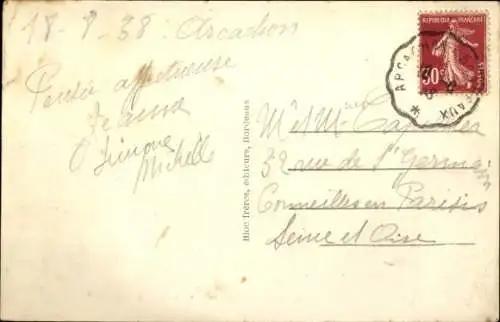 18-8-38 : Arcachon
Pensée affectueuse
Jeanne
Simone
Michelle
Bloc frères, éditeurs, Bordeaux
REPUBLIQUE FRANÇAISE
30c
ARCACHON
AUX
Mr et Mme
32 rue de St Germain
Cormeilles en Parisis
Seine et Oise